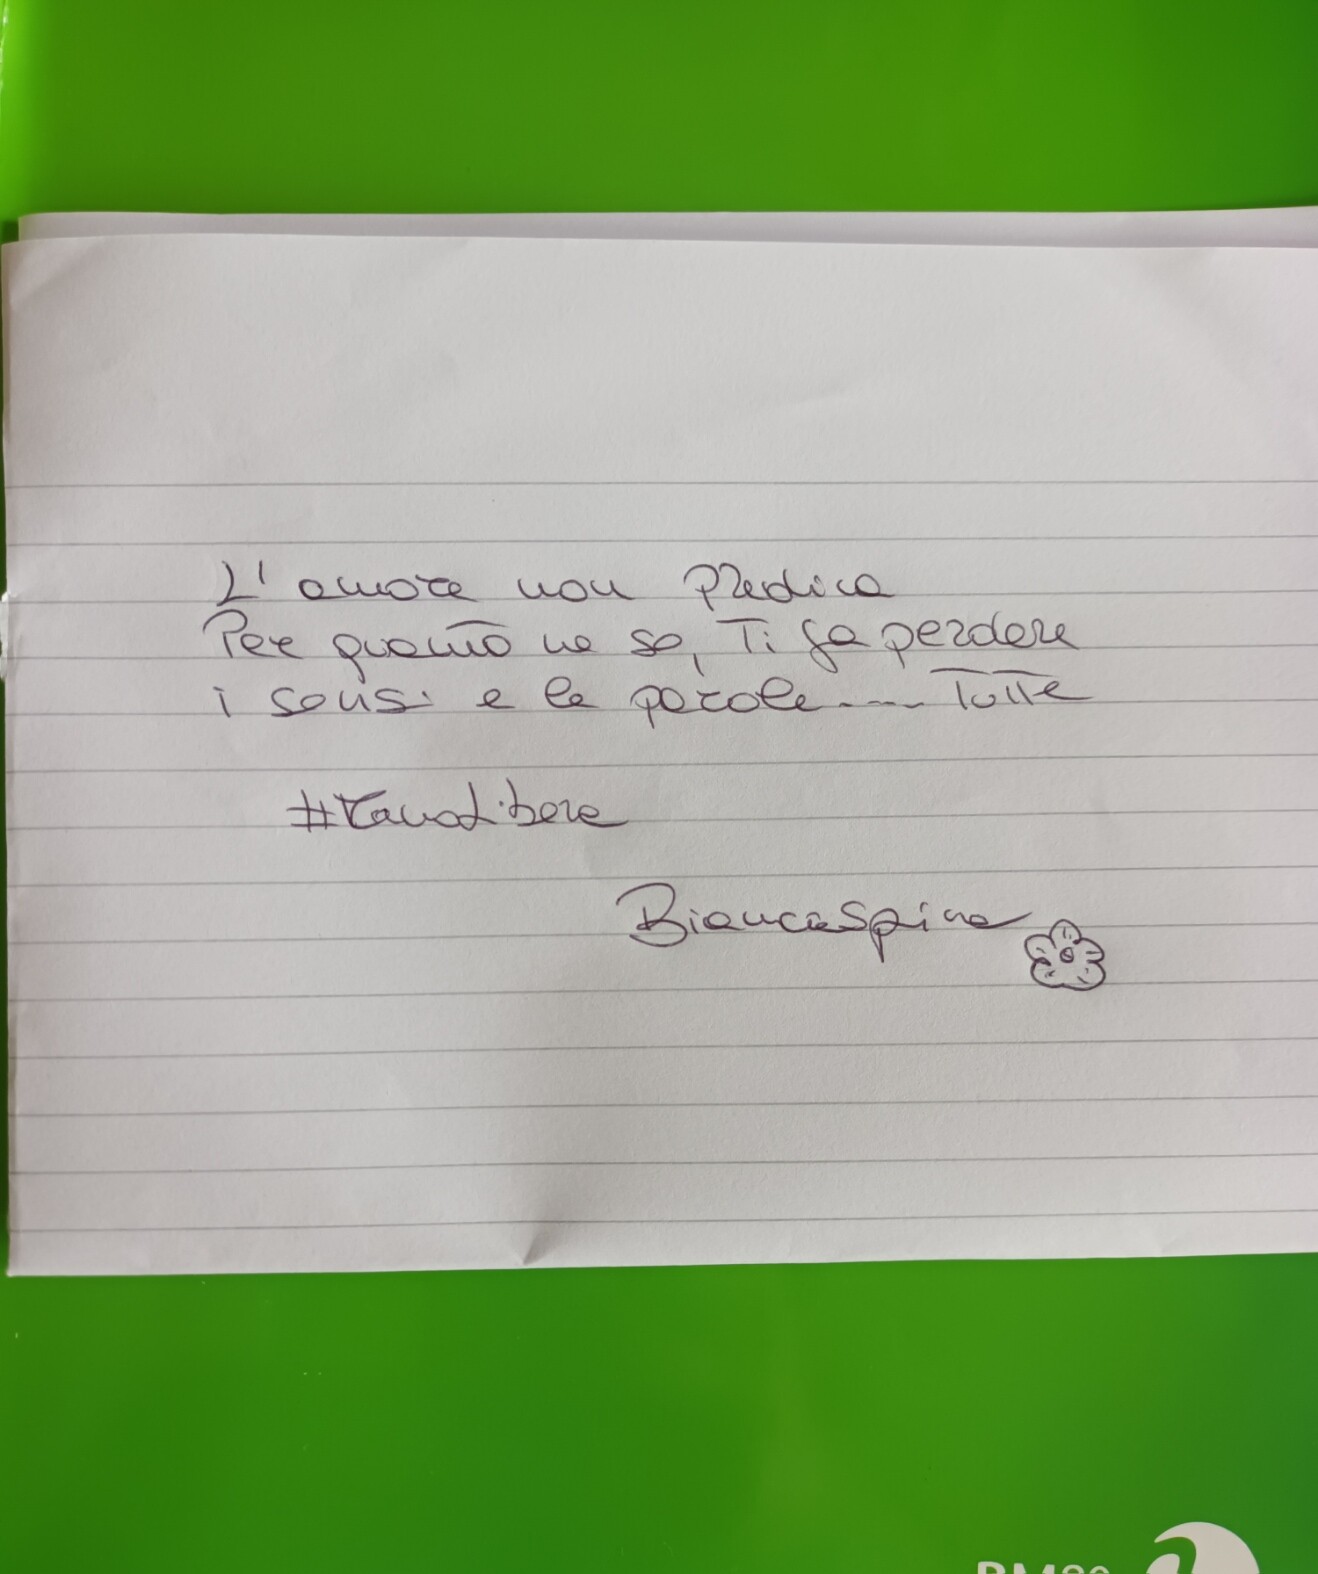 L'amore non predica
Per quanto ne so, Ti fa perdere
i sensi e le parole.... Tutte
#TanaLibera
BiancaSpina